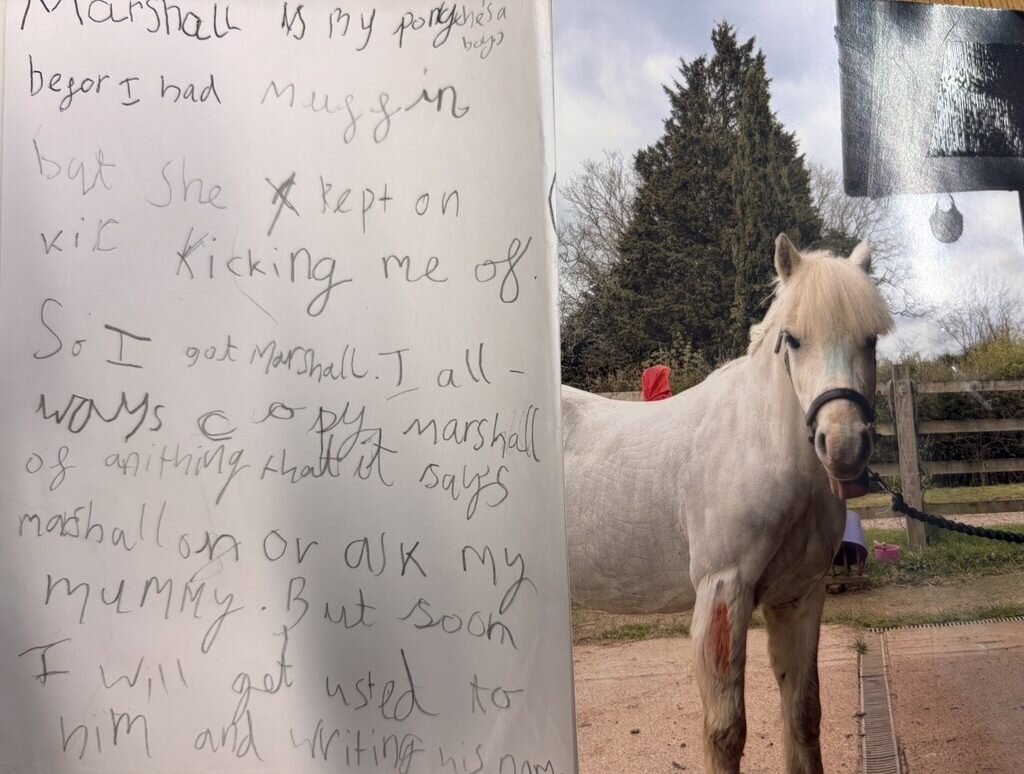 Marshall is my pony
he's a
boy
begor I had Muggin
bat she kept on
kic kicking me of.
So I got Marshall. I all-
ways c opy marshall
of anithing that it says
marshall on or ask my
mummy. But soon
I will get usted to
him and writing his nam